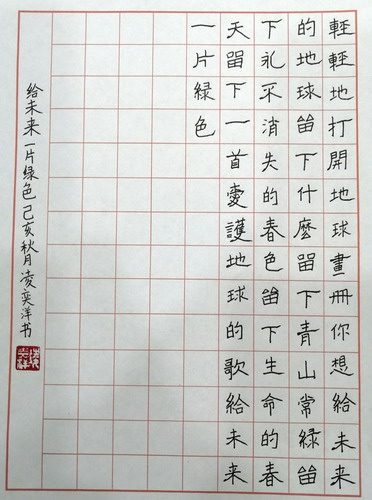 輕輕地打開地球畫冊你想給未来
的地球留下什麼留下青山常綠留
下永不消失的春色留下生命的春
天留下一首愛護地球的歌給未来
一片綠色
给未来一片绿色己亥秋月凌奕洋书